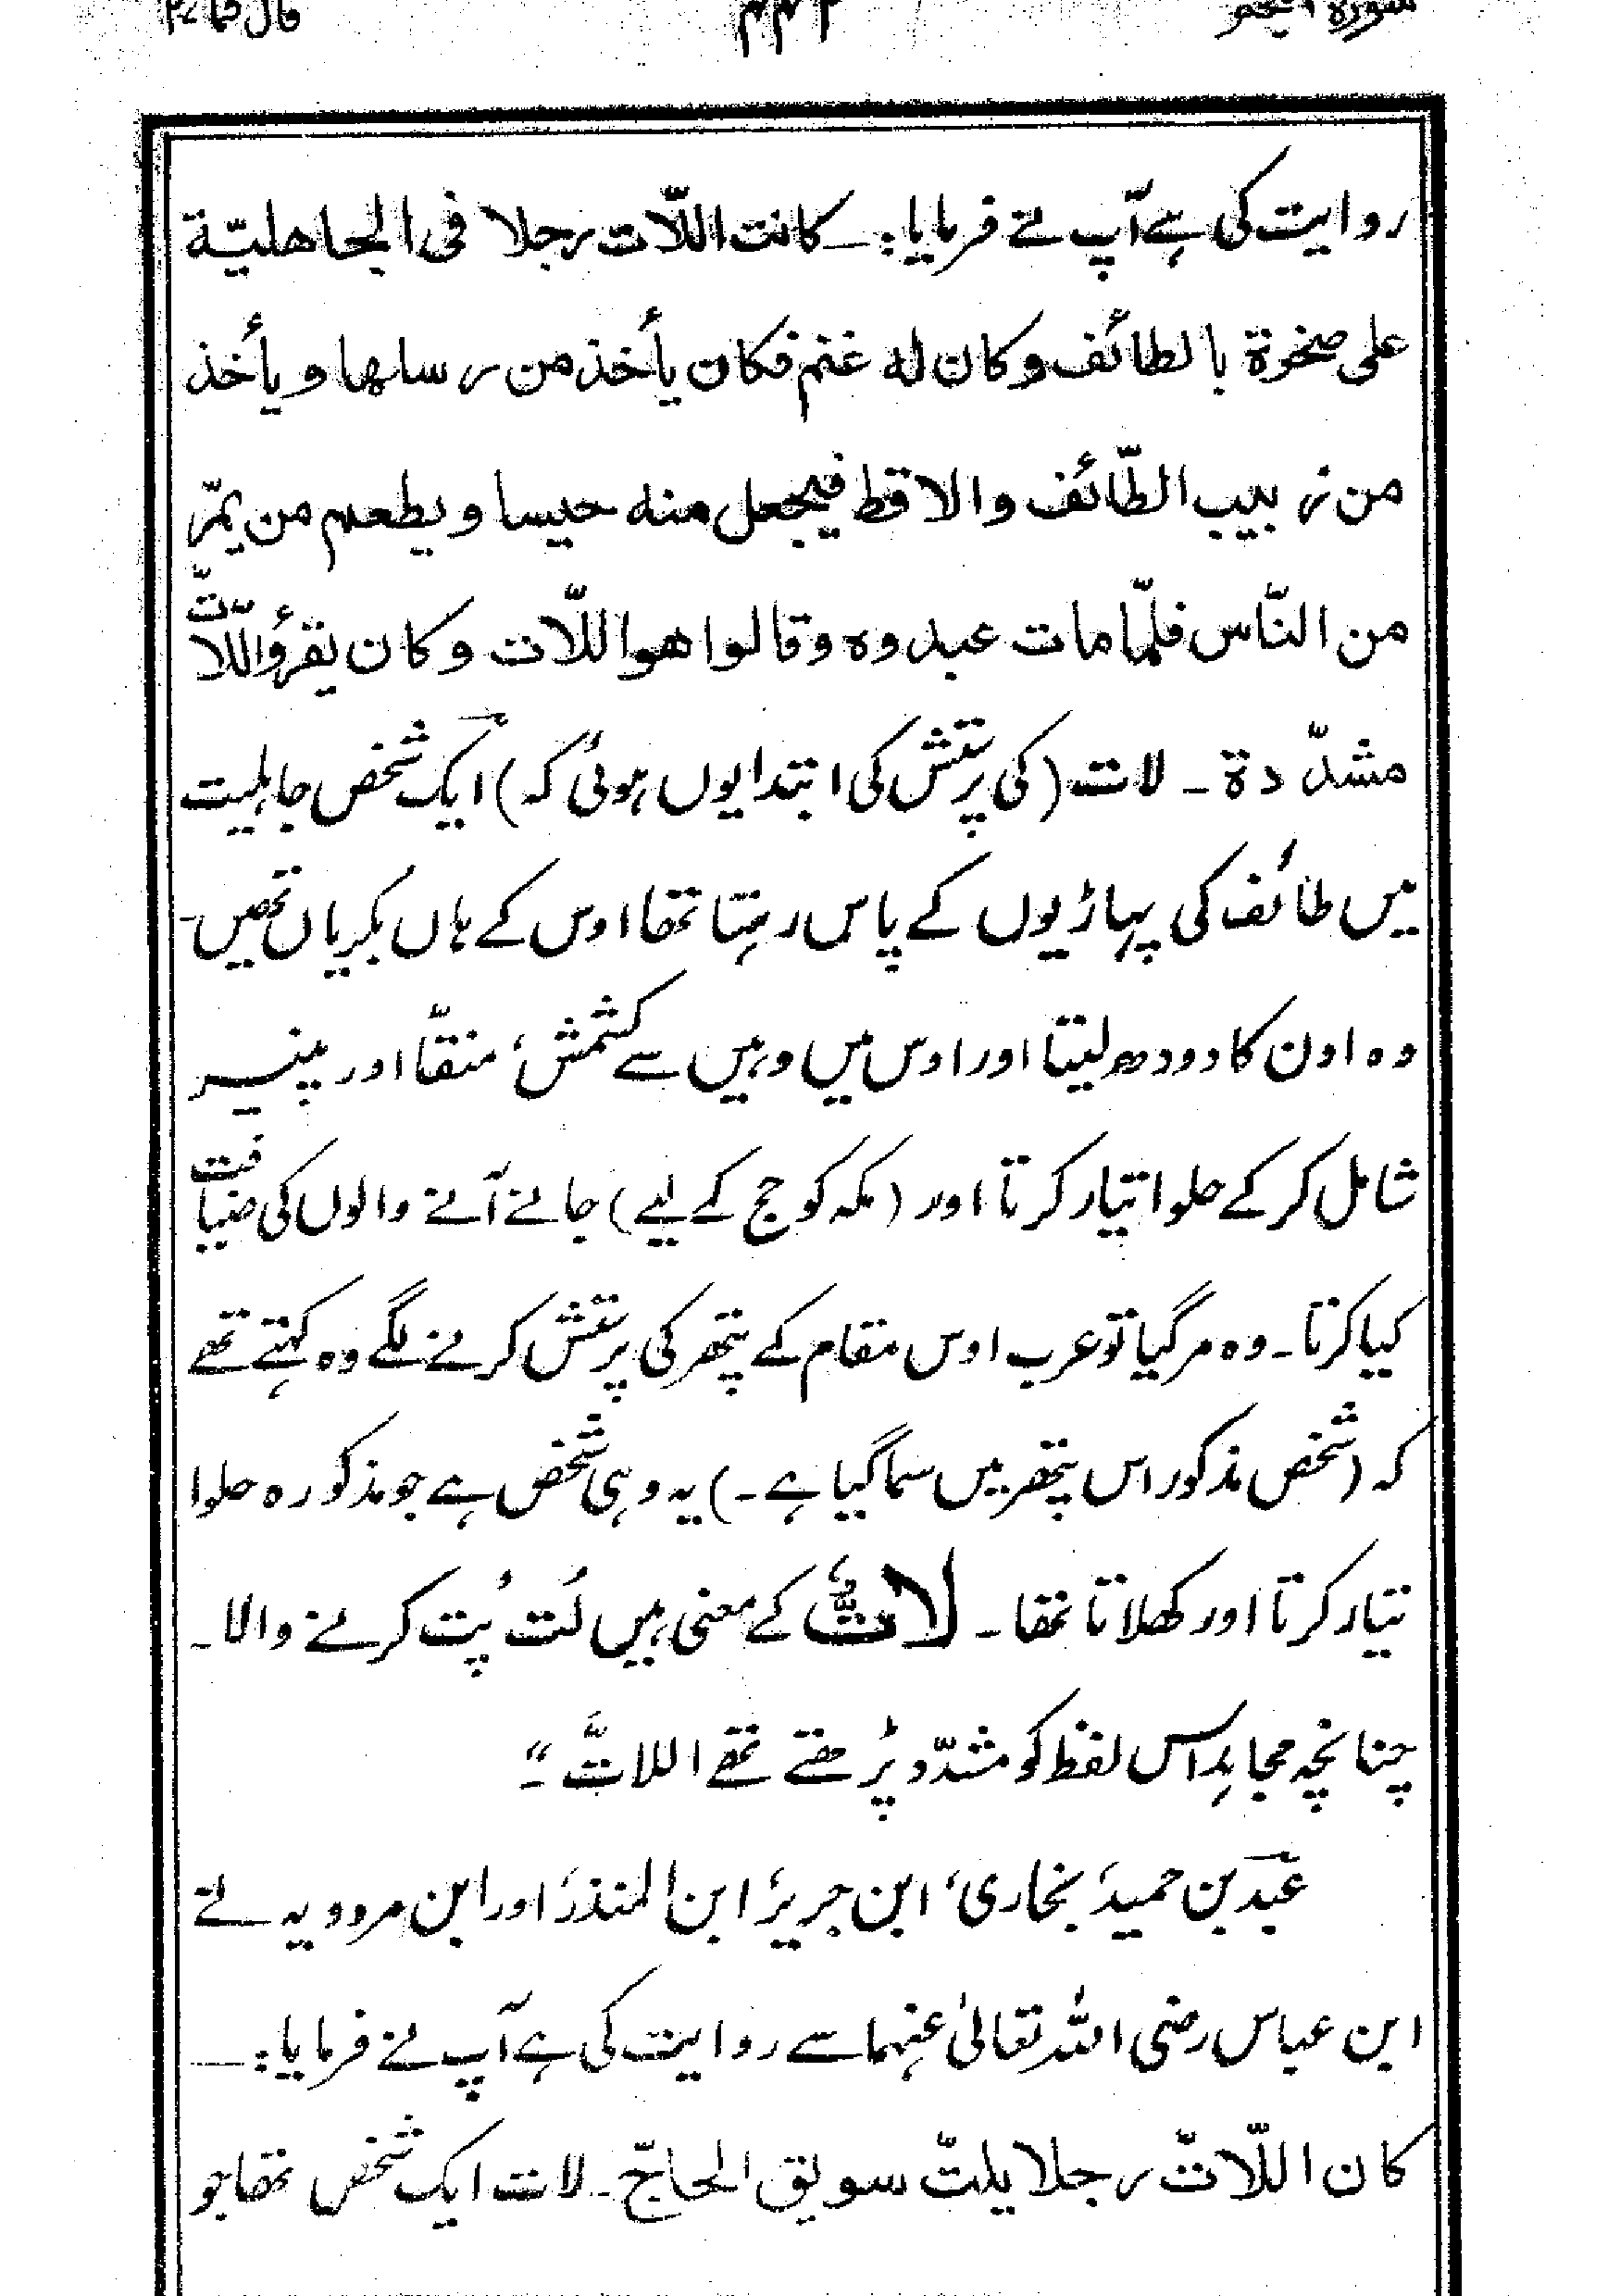 سورة النجم ۴۴۲ قال فما ۲۷
روایت کی ہے آپ نے فرمایا:ــ کانت اللّات رجلا فی الجاھلیّة
علی صخرة بالطائف وکان له غنم فکان یأخذ من رسلھا و یأخذ
من زبیب الطّائف والاقط فیجعل منه حیسا و یطعم من یمرّ
من النّاس فلمّا مات عبدوہ وقالوا ھو اللّات وکان یقرؤ اللّاتّ
مشدّدة ۔ لات (کی پرستش کی ابتدا یوں ہوئی کہ) ایک شخص جاہلیت
میں طائف کی پہاڑیوں کے پاس رہتا تھا اوس کے ہاں بکریاں تھیں۔
وہ اون کا دودھ لیتا اور اوس میں وہیں سے کشمش، منقّا اور پنیر
شامل کر کے حلوا تیار کرتا اور (مکہ کو حج کے لیے) جانے آنے والوں کی ضیافت
کیا کرتا۔ وہ مر گیا تو عرب اوس مقام کے پتھر کی پرستش کرنے لگے وہ کہتے تھے
کہ (شخص مذکور اس پتھر میں سما گیا ہے۔) یہ وہی شخص ہے جو مذکورہ حلوا
تیار کرتا اور کھلاتا تھا۔ لاتٌّ کے معنی ہیں لُت پُت کرنے والا۔
چنانچہ مجاہد اس لفظ کو مشدّد پڑھتے تھے اللاتَّ۔“
عبد بن حمید، بخاری، ابن جریر، ابن المنذر، اور ابن مردویہ نے
ابن عباس رضی اللہ تعالیٰ عنہما سے روایت کی ہے آپ نے فرمایا:ــ
کان اللّاتّ رجلا یلتّ سویق الحاجّ۔ لات ایک شخص تھا جو